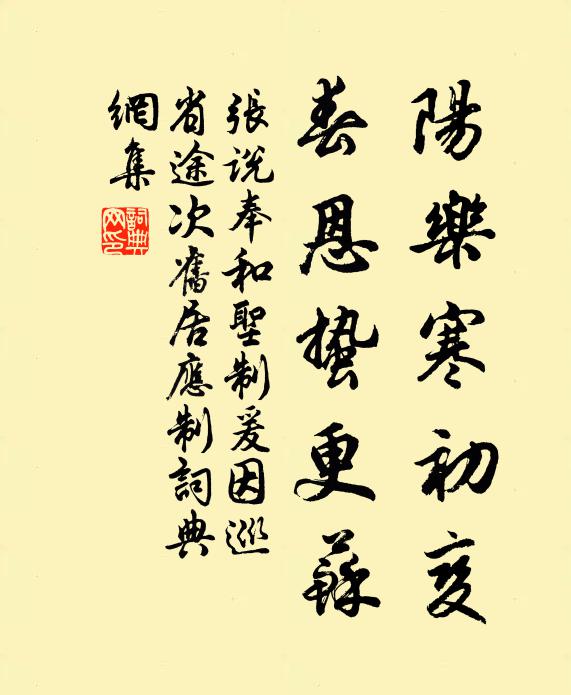 陽樂寒初變
春恩蟄更蘇
張說奉和聖制爰因巡
省途次舊居應制詞典
網集
詞典
网印